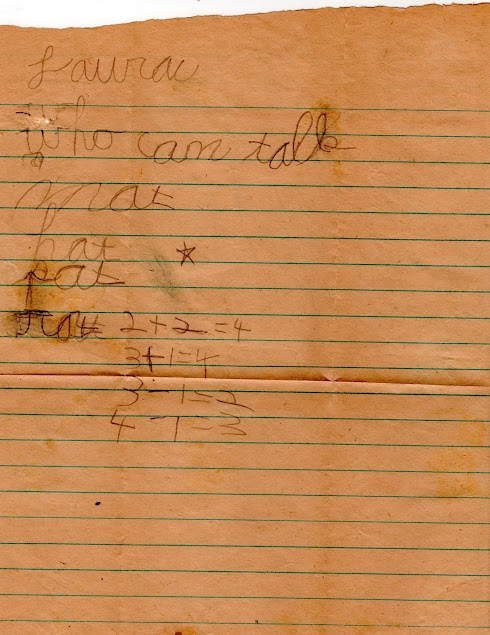 Laura
who can talk
mat
hat
pat
2+2=4
3+1=4
3-1=2
4-1=3